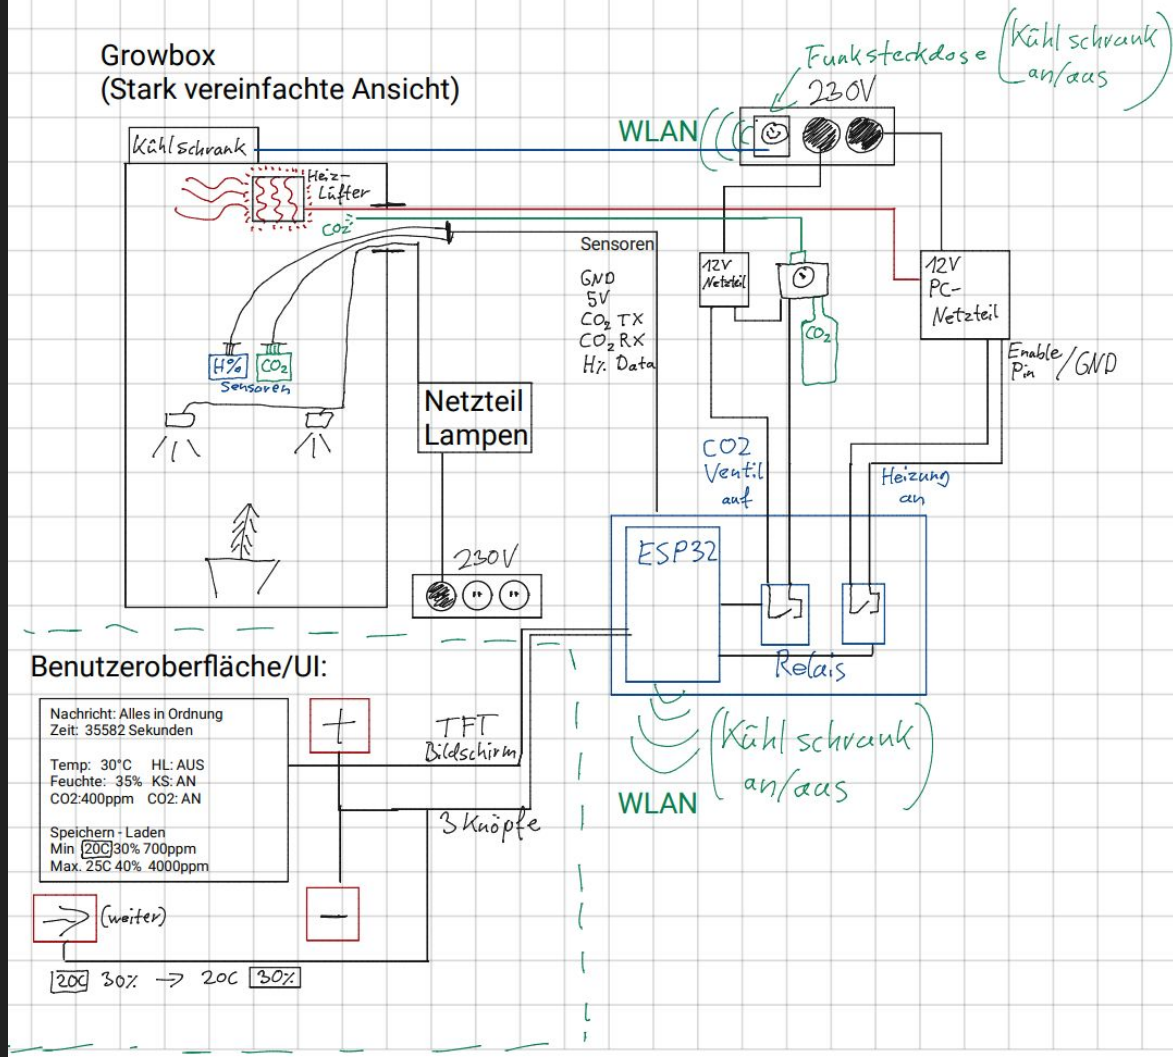 Growbox
(Stark vereinfachte Ansicht)
Funksteckdose (Kühlschrank
an/aus)
230V
WLAN
Kühlschrank
Heiz-
Lüfter
CO2
Sensoren
GND
5V
CO2 TX
CO2 RX
H% Data
12V
Netzteil
CO2
12V
PC-
Netzteil
Enable/GND
Pin
H% CO2
Sensoren
Netzteil
Lampen
CO2
Ventil
auf
Heizung
an
230V
ESP32
Relais
(Kühlschrank
an/aus)
WLAN
Benutzeroberfläche/UI:
Nachricht: Alles in Ordnung
Zeit: 35582 Sekunden
Temp: 30°C HL: AUS
Feuchte: 35% KS: AN
CO2:400ppm CO2: AN
Speichern - Laden
Min 20C 30% 700ppm
Max. 25C 40% 4000ppm
+
TFT
Bildschirm
3 Knöpfe
-
→ (weiter)
20C 30% → 20C 30%